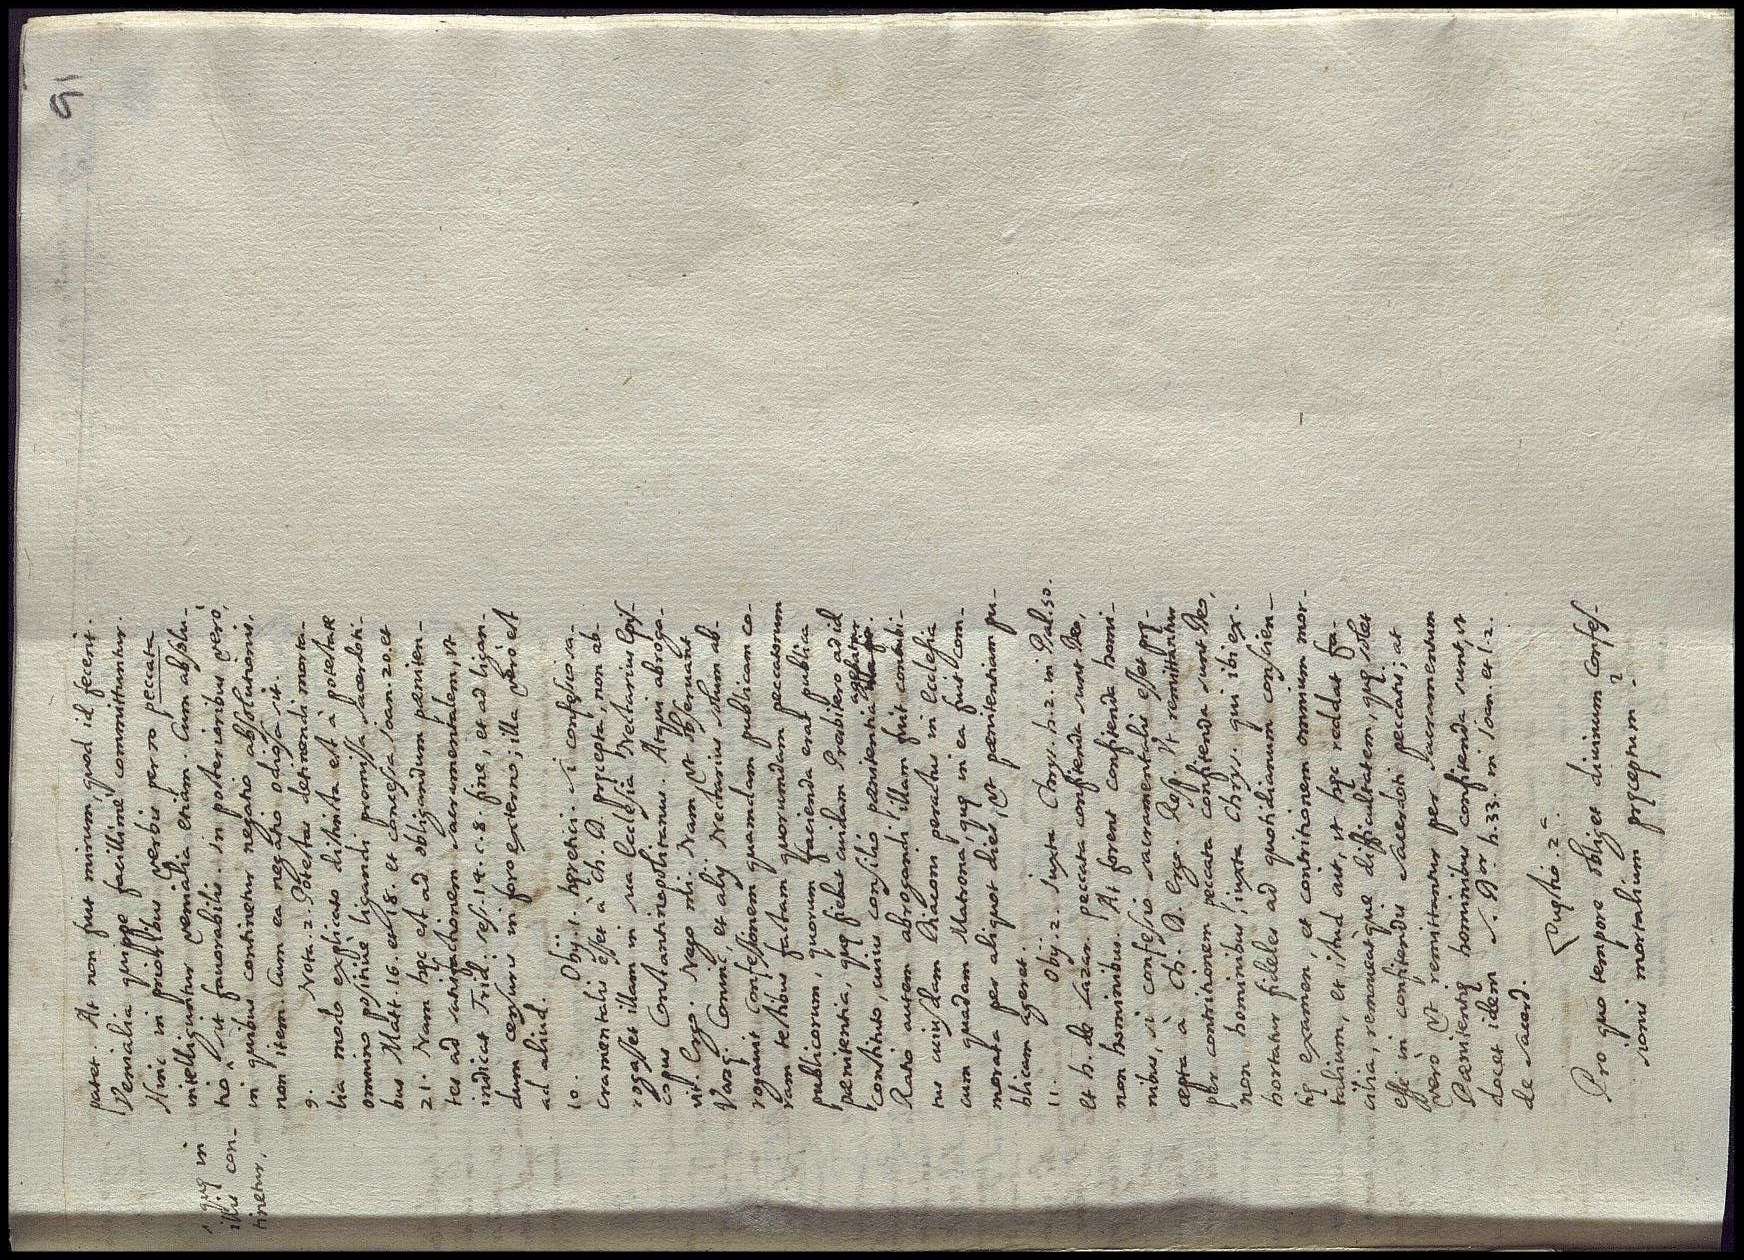 91
patet. At non fuit mirum, quod id fecerit.
Venialia quippe facillimè committuntur.
Hinc in prioribus verbis pecto peccata
intelliguntur venialia etiam. Cum absolu-
tio ^ sit favorabilis. in posterioribus vero,
^ quę in
illis con-
tinetur.
in quibus continetur negatio absolutionis,
non item. Cum ea negatio odiosa sit.
9. Nota. 2. Potestas detinendi morta-
lia modo explicato distincta est à potestate
omnino positivè ligandi promissa sacerdoti-
bus Matt. 16. et 18. et concessa Ioan. 20. et
21. Nam hęc est ad obligandum pœniten-
tes ad satisfactionem sacramentalem, vt
indicat Trid. ses. 14. c. 8. fine, et ad ligan-
dum censuris in foro externo; illa verò est
ad aliud.
10. Obij. 1. hęretici. si confessio sa-
cramentalis esset à Ch. D. pręcepta, non ab-
rogasset illam in sua Ecclesia Nectarius Epis-
copus Constantinopolitanus. Atqui abroga-
vit. Ergo. Nego mi. Nam vt observant
Vazq. Connic, et alij Nectarius solum ab-
rogavit Confessionem quamdam publicam co-
ram testibus factam quorumdam peccatorum
publicorum, quorum facienda erat publica
pœnitentia, quę fiebat cuidam Presbitero ad id
constituto, cuius consilio pœnitentia agebatur.
Ratio autem abrogandi illam fuit concubi-
tus cuiusdam Diaconi peractus in ecclesia
cum quadam Matrona, quę in ea fuit com-
morata per aliquot dies, vt pœnitentiam pu-
blicam ageret.
11. Obij. 2. iuxta Chrys. h. 2. in Psal. 50.
et h. de Lazar. peccata confitenda sunt Deo,
non hominibus. At forent confitenda homi-
nibus, si confessio sacramentalis esset prę-
cepta à Ch. D. Ergo. Resp. Vt remittantur
per contritionem peccata confitenda sunt Deo,
non hominibus, iuxta Chrys. qui ibi ex-
hortatur fideles ad quotidianum conscien-
tię examen, et contritionem omnium mor-
talium, et istud ait, vt hęc reddat fa-
cilia, removeatque difficultatem, quę solet
esse in confitendis sacerdoti peccatis; at
verò vt remittantur per sacramentum
Pœnitentię hominibus confitenda sunt, vt
docet idem h. 33. in Ioan. et l. 2.
de Sacerd.
Pugstio. 2ª
Pro quo tempore obliget divinum Confes-
sionis mortalium pręceptum?